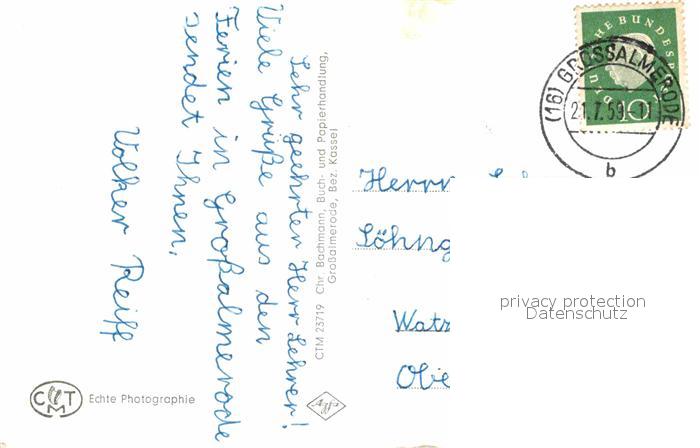 Sehr geehrter Herr Lehrer!
Viele Grüße aus den
Ferien in Großalmerode
sendet Ihnen,
Volker Reiff
CTM 23719 Chr. Bachmann, Buch- und Papierhandlung,
Großalmerode, Bez. Kassel
CTM
Echte Photographie
Agfa
DEUTSCHE BUNDESPOST
10
(16) GROSSALMERODE
21.7.59-11
b
Herrn
Löhng
Watz
Obe
privacy protection
Datenschutz